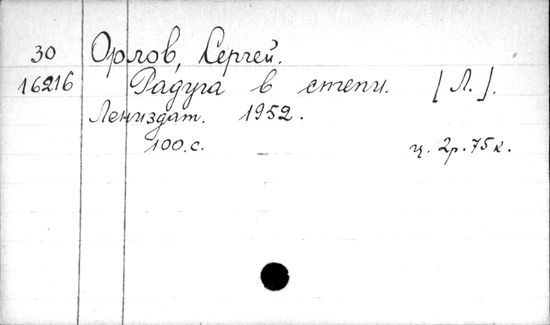 30 Орлов, Сергей.
16216 Радуга в степи. [Л.].
Лениздат. 1952.
100.с. — ц. 2р.75к.